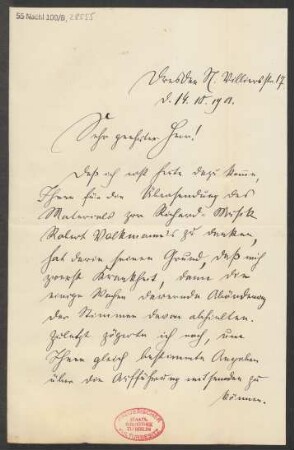 55 Nachl 100/B,
Dresden N
d. 14. 10. 1901.
Sehr geehrter Herr!
Daß ich erst heute dazu komme,
Ihnen für die Übersendung des
Materials zur Richard-Musik
Robert Volkmanns zu danken,
hat darin seinen Grund, daß mich
zuerst Krankheit, dann die
einige Wochen dauernde
der Stimmen davon abhielten.
Zuletzt zögerte ich noch, um
Ihnen gleich bestimmte Angaben
über die Aufführung mitsenden zu
können.